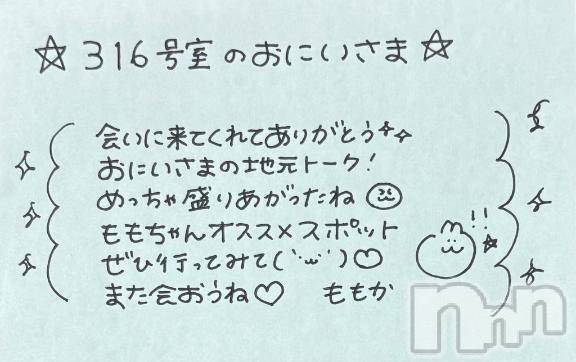 ☆316号室のおにいさま☆
会いに来てくれてありがとう✧✧
おにいさまの地元トーク!
めっちゃ盛りあがったね
ももちゃんオススメスポット
ぜひ行ってみて(˙ω˙)♡
!!
また会おうね♡ ももか
nnn